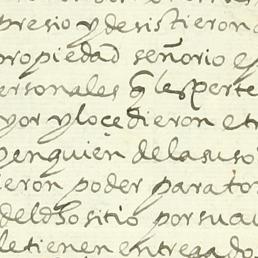 presio y desistieron
propiedad señorio e
ersonales q les perte
yor y lo cedieron e tr
en quien de la suso
ieron poder para to
del dho sitio por su au
le tienen entregado